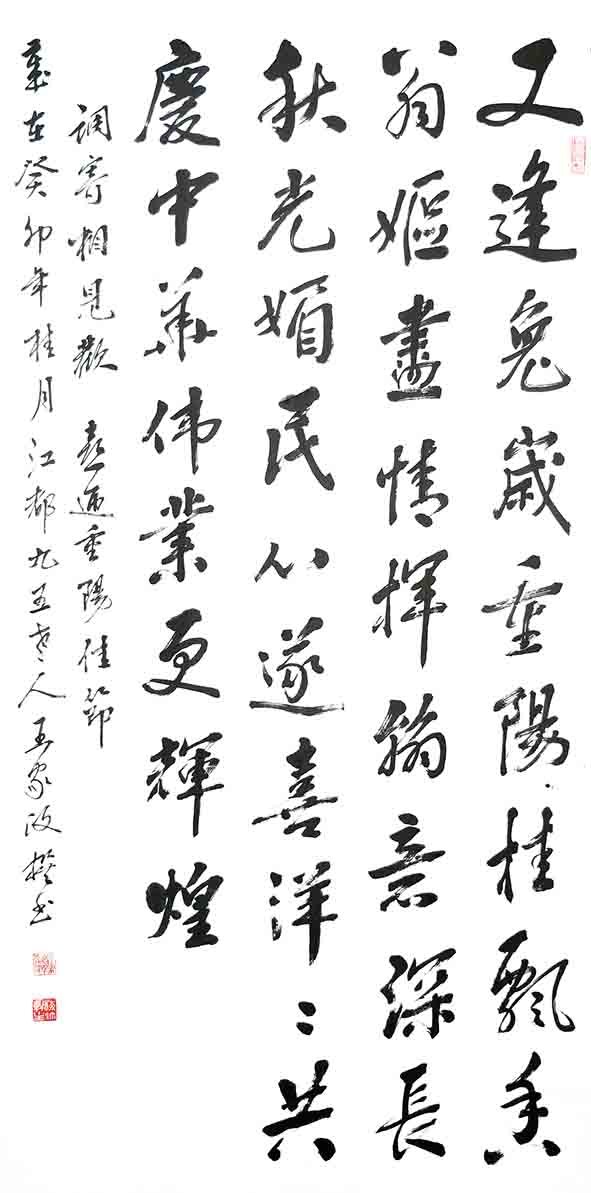 又逢兔歲重陽桂飄香
翁嫗盡情揮翰意深長
秋光媚民心遂喜洋〻共
慶中華伟業更輝煌
调寄相見歡 喜迎重陽佳節
歲在癸卯年桂月江都九五老人王家撰书